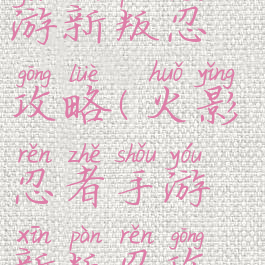 游新叛忍
gōng lüè huǒ yǐng
攻略(火影
rěn zhě shǒu yóu
忍者手游
xīn pàn rěn gōng
新叛忍攻